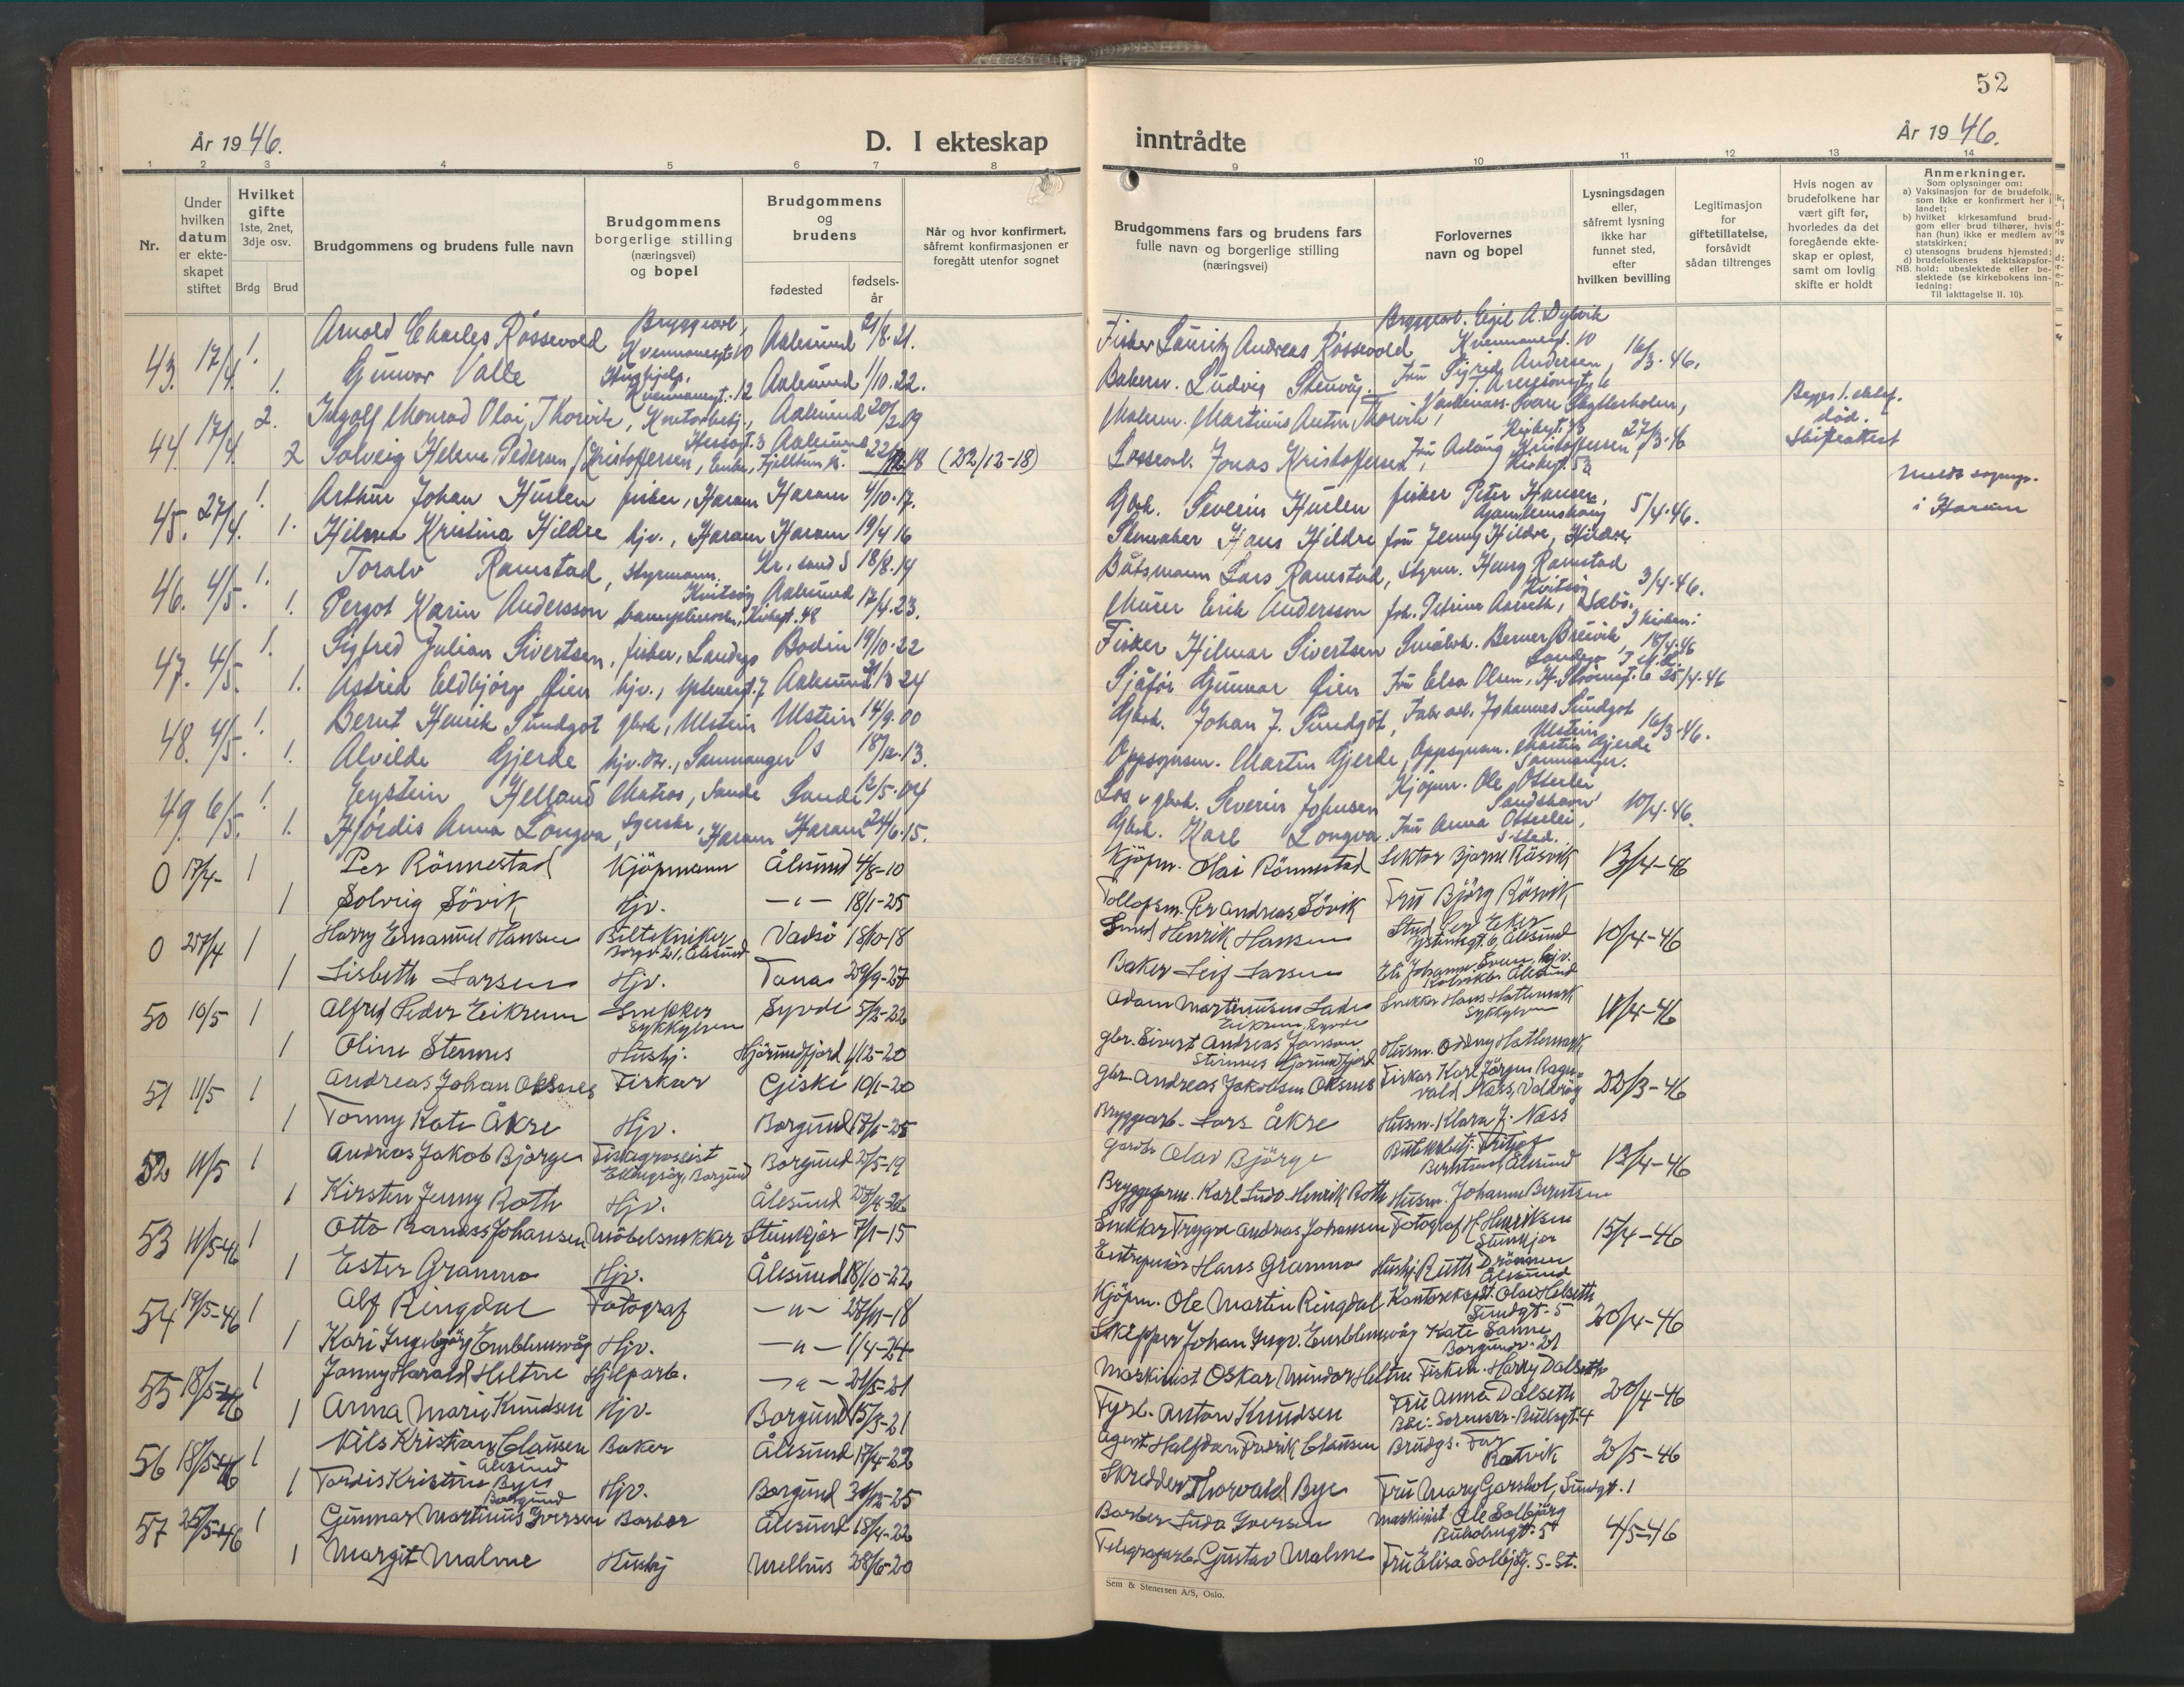 52
År 1946.
D. I ekteskap
inntrådte
År 1946.
1 2 3 4 5 6 7 8 9 10 11 12 13 14
Nr.
Under hvilken datum er ekteskapet stiftet
Hvilket gifte 1ste, 2net, 3dje osv.
Brdg Brud
Brudgommens og brudens fulle navn
Brudgommens borgerlige stilling (næringsvei) og bopel
Brudgommens og brudens
fødested
fødsels-år
Når og hvor konfirmert, såfremt konfirmasjonen er foregått utenfor sognet
Brudgommens fars og brudens fars fulle navn og borgerlige stilling (næringsvei)
Forlovernes navn og bopel
Lysningsdagen eller, såfremt lysning ikke har funnet sted, efter hvilken bevilling
Legitimasjon for giftetillatelse, forsåvidt sådan tiltrenges
Hvis nogen av brudefolkene har vært gift før, hvorledes da det foregående ekteskap er opløst, samt om lovlig skifte er holdt
Anmerkninger.
Som oplysninger om:
a) Vaksinasjon for de brudefolk, som ikke er konfirmert her i landet;
b) hvilket kirkesamfund brudgom eller brud tilhører, hvis han (hun) ikke er medlem av statskirken;
c) utensogns brudens hjemsted;
d) brudefolkenes slektskapsforhold: ubeslektede eller beslektede (se kirkebokens innledning:
NB.
Til iakttagelse II. 10).
43. 17/4. 1. Arnold Charles Røssevold Bryggearb, Kvennaneset 10 Aalesund 21/8.21. Fisker Lauritz Andreas Røssevold Bryggearb. Egil A. Dybvik 16/3.46.
1. Gunvor Valle Aalesund 1/10.22. Ludvig Stenvåg. Fru Sigrid Andersen,
44. 17/4. 2. Ingolf Monrad Olai Thorvik, Kontorbetj., Aalesund 20/2.09 Malerm. Martinus Anton Thorvik, 27/3.46 Begges 1. ektef. død. Skifteattest
2 Solveig Helene Pedersen f. Kristoffersen, Enke, Aalesund 22/12.18 (22/12-18) Jonas Kristoffersen, Fru Aslaug Kristoffersen
45. 27/4. 1. Arthur Johan Huslen fisker, Haram Haram 4/10.17. Gbrk. Severin Huslen fisker Peter Hansen, 5/4.46. i Haram
1. Hilma Kristina Hildre hjv., Haram Haram 19/4 16 Hans Hildre fru Jenny Hildre, Hildre.
46. 4/5. 1. Toralv Ramstad, styrmann. Kr.sund S 18/8.14 Båtsmann Lars Ramstad, styrm. Henry Ramstad 3/4.46.
1. Pergot Karin Andersson Kirkegt. 48 Aalesund 17/4.23. Murer Erik Andersson
47. 4/5. 1. Sigfred Julian Sivertsen, fisker, Landego Bodin 19/10.22 Fisker Hilmar Sivertsen Småbrk. Berner Breivik, Landego 18/4.46
1. Astrid Eldbjørg Øien hjv., Aalesund 24 Sjåfør Gunnar Øien Fru Elsa Olsen, 25/4.46
48. 4/5. 1. Bernt Henrik Sundgot gbrk, Ulstein Ulstein 14/9.00 Gbrk. Johan J. Sundgot, Fabr.arb. Johannes Sundgot Ulstein 16/3.46.
1. Alvilde Gjerde hjv., Samnanger Os 18/12.13. Oppsynsm. Martin Gjerde, Oppsynsm. Martin Gjerde Samnanger.
49. 6/5. 1. Øystein Helland Matros, Sande Sande 12/5.04 Los & gbrk. Severin Johnsen Kjøpm. Ole Otterlei Sandshavn 10/4.46.
1. Hjørdis Anna Longva, Haram Haram 24/6.15. Gbrk. Karl Longva. Fru Anna Otterlei, s.sted.
0 17/4- 1 Per Rönnestad Kjöpmann Ålesund 4/8-10 Kjöpm. Olai Rönnestad Lektor Bjarne Råsvik 13/4-46
1 Solveig Sövik Hjv. -"- 18/1-25 Tollopsm. Per Andreas Sövik Fru Björg Råsvik
0 27/4 1 Harry Emanuel Hansen Biltekniker Borgv. 21, Ålesund Vadsö 18/10-18 Smed Henrik Hansen Stud. Per Eker Ålesund 10/4-46
1 Lisbeth Larsen Hjv. Tana 29/9-27 Baker Leif Larsen Ålesund
50 10/5 1 Alfred Peder Eikrem Snekker Sykkylven Syvde 5/2-22 Snekker Hans Hattemark Sykkylven 11/4-46
1 Oline Stennes Hushj. Hjörundfjord 1/12-20 Gbr. Sivert Andreas Jonson Stennes Hjorundfjord Husm. Oddny Hattemark
51 11/5 1 Andreas Johan Oksnes Fiskar Giske 10/1-20 Gbr. Andreas Jakobsen Oksnes Fiskar Karl Jörgen Ragnvald Næss, Valderöy 22/3-46
1 Tonny Kate Åkre Hjv. Borgund 17/1-25 Bryggearb. Lars Åkre Husm. Klara J. Næss
52 11/5 1 Andreas Jakob Björge Fiskegrossist Ellingsöy, Borgund Borgund 27/5-19 Gardbr. Olav Björge Ålesund 13/4-46
1 Kirsten Jenny Roth Hjv. Ålesund Karl Ludv. Henrik Roth Husm. Johanne Berntsen
53 11/5-46 1 Otto Johansen Möbelsnekkar Steinkjer 7/1-15 Snekkar Trygve Andreas Johansen Fotograf H Henriksen Steinkjer 15/4-46
1 Ester Gramno Hjv. Ålesund 18/10-22 Entreprenör Hans Gramno Hushj. Ruth Drönnen Ålesund
54 17/5-46 1 Alf Ringdal Fotograf -"- 27/11-18 Kjöpm. Ole Martin Ringdal Olav Helseth 20/4-46
1 Kari Ingebjörg Emblemsvåg Hjv. -"- 1/4-24 Skipper Johan Ingv. Emblemsvåg Kate Sanne Borgundv. 21
55 18/5-46 1 Jonny Harald Heltne Hjelparb. -"- 21/5-21 Maskinist Oskar Mindor Heltne Fiskeh. Harry Dalseth 20/4-46
1 Anna Marie Knudsen Hjv. Borgund 15/3-21 Fyrb. Anton Knudsen Fru Anna Dalseth
56 18/5-46 1 Nils Kristian Clausen Ålesund Baker Ålesund 17/4-22 Agent Halfdan Fredrik Clausen Brudgs. Far Ratvik 2/5-46
1 Tordis Kristine Bye Borgund Hjv. Borgund Skredder Thorvald Bye Fru Mary Garshol, Sundgt. 1
57 25/5-46 1 Gunnar Martinus Iversen Barber Ålesund 18/4-22 Barber Ludv Iversen Maskinist Ole Solbjörg 4/5-46
1 Margit Malme Hushj Melhus 28/6-20 Telegrafarb. Gustav Malme Fru Elisa Solbjörg. S-St.
Sem & Stenersen A/S, Oslo.